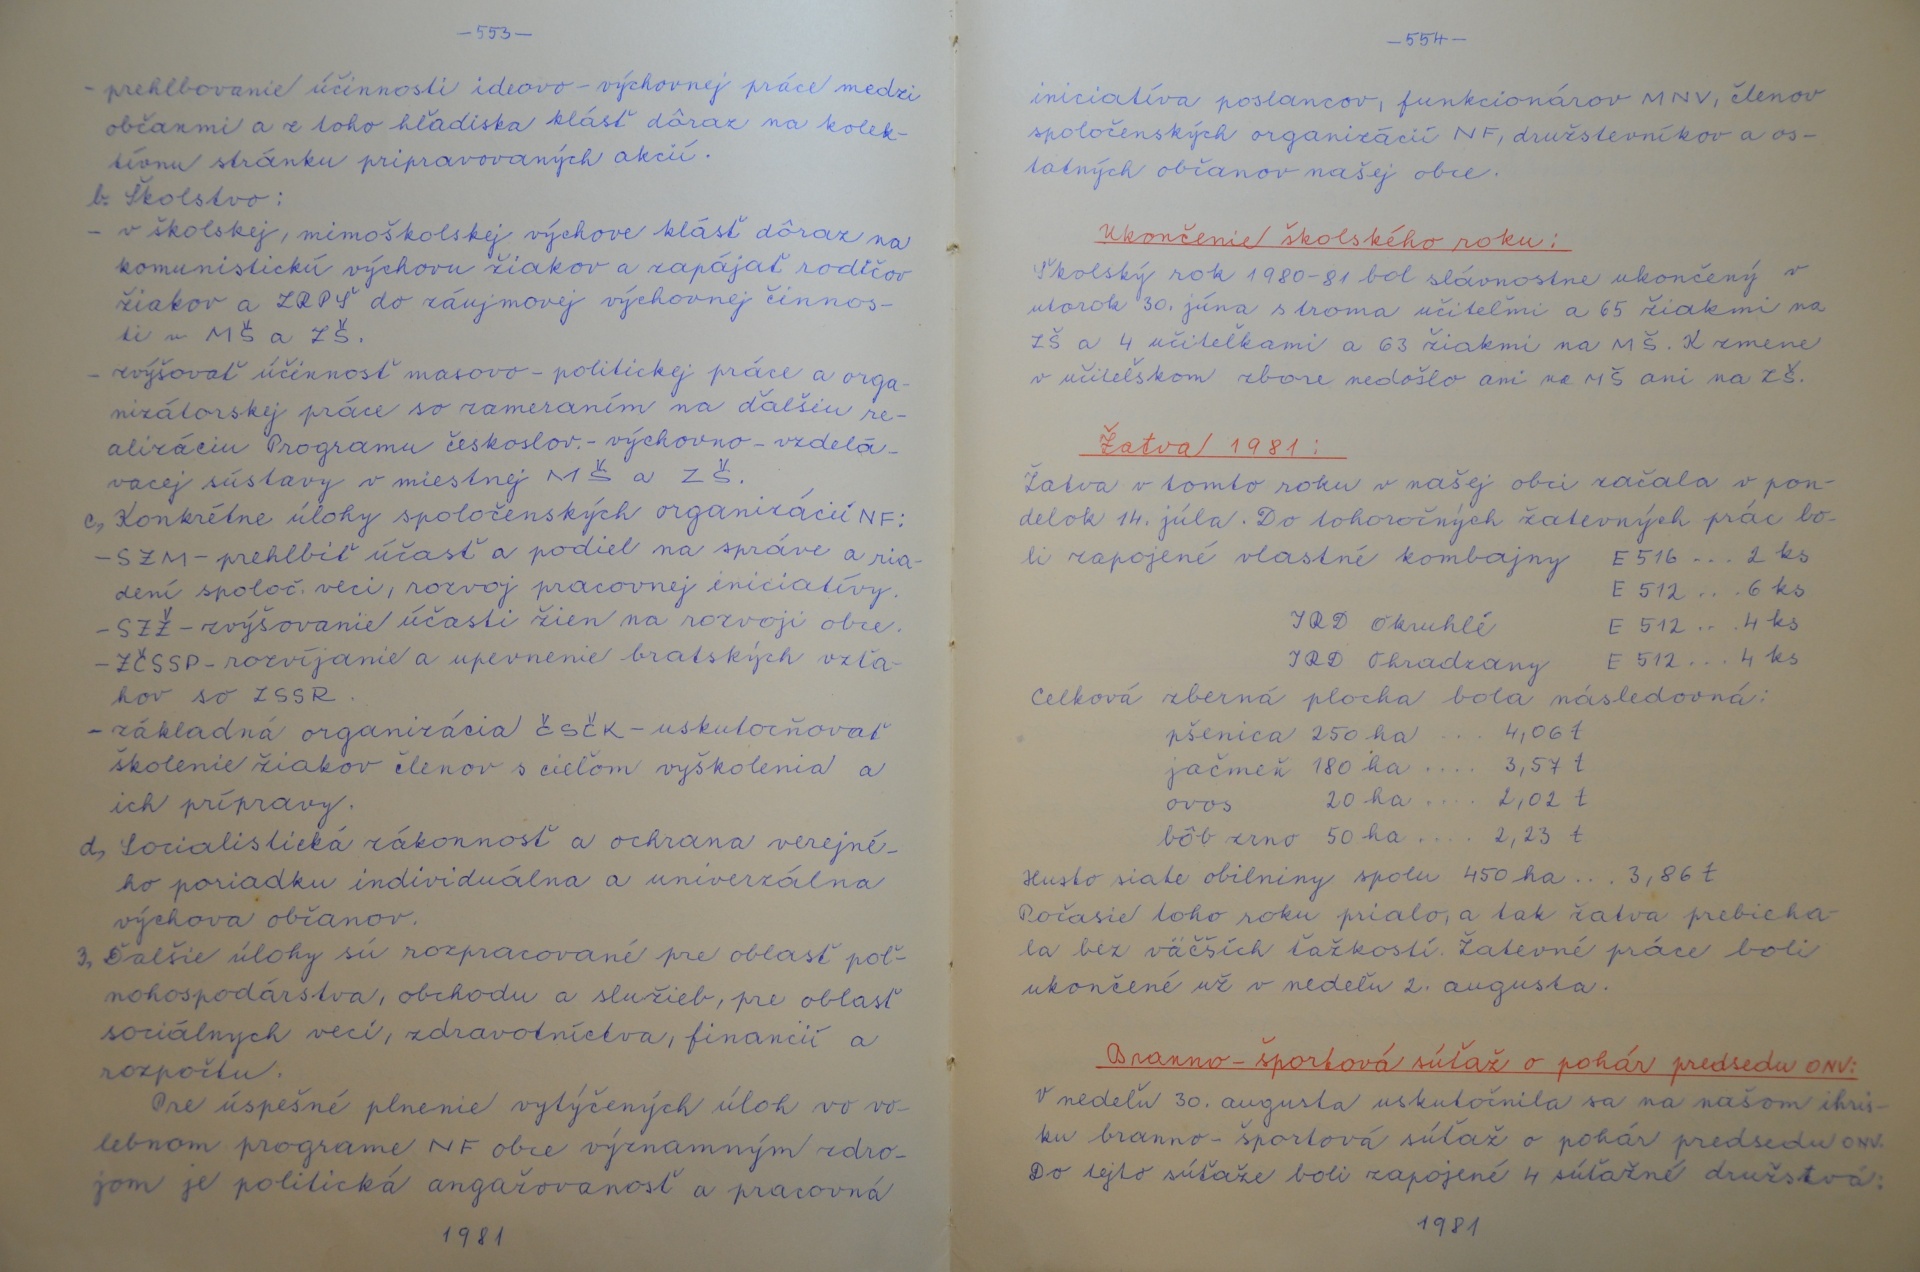 -553-
- prehlbovanie účinnosti ideovo-výchovnej práce medzi
občanmi a z toho hľadiska klásť dôraz na kolek-
tívnu stránku pripravovaných akcií.
b. Školstvo:
- v školskej, mimoškolskej výchove klásť dôraz na
komunistickú výchovu žiakov a zapájať rodičov
žiakov a ZRPŠ do záujmovej výchovnej činnos-
ti v MŠ a ZŠ.
- zvýšovať účinnosť masovo-politickej práce a orga-
nizátorskej práce so zameraním na ďalšiu re-
alizáciu Programu českoslov.-výchovno-vzdelá-
vacej sústavy v miestnej MŠ a ZŠ.
c, Konkrétne úlohy spoločenských organizácií NF:
-SZM-prehlbiť účasť a podiel na správe a ria-
dení spoloč. veci, rozvoj pracovnej iniciatívy.
-SZŽ-zvýšovanie účasti žien na rozvoji obce.
-ZČSSP-rozvíjanie a upevnenie bratských vzťa-
hov so ZSSR.
- základná organizácia ČSČK-uskutočňovať
školenie žiakov členov s cieľom vyškolenia a
ich prípravy.
d, Socialistická zákonnosť a ochrana verejné-
ho poriadku individuálna a univerzálna
výchova občanov.
3, Ďalšie úlohy sú rozpracované pre oblasť poľ-
nohospodárstva, obchodu a služieb, pre oblasť
sociálnych vecí, zdravotníctva, financií a
rozpočtu.
Pre úspešné plnenie vytýčených úloh vo vo-
lebnom programe NF obce významným zdro-
jom je politická angažovanosť a pracovná
1981
-554-
iniciatíva poslancov, funkcionárov MNV, členov
spoločenských organizácií NF, družstevníkov a os-
tatných občanov našej obce.
Ukončenie školského roku:
Školský rok 1980-81 bol slávnostne ukončený v
utorok 30. júna s troma učiteľmi a 65 žiakmi na
ZŠ a 4 učiteľkami a 63 žiakmi na MŠ. K zmene
v učiteľskom zbore nedošlo ani na MŠ ani na ZŠ.
Žatva 1981:
Žatva v tomto roku v našej obci začala v pon-
delok 14. júla. Do tohoročných žatevných prác bo-
li zapojené vlastné kombajny E 516 ... 2 ks
E 512 ... 6 ks
JRD Okruhlé E 512 ... 4 ks
JRD Ohradzany E 512 ... 4 ks
Celková zberná plocha bola následovná:
pšenica 250 ha .... 4,06 t
jačmeň 180 ha .... 3,57 t
ovos 20 ha .... 2,02 t
bôb zrno 50 ha .... 2,23 t
Husto siate obilniny spolu 450 ha ... 3,86 t
Počasie toho roku prialo, a tak žatva prebieha-
la bez väčších ťažkostí. Žatevné práce boli
ukončené už v nedeľu 2. augusta.
Branno-športová súťaž o pohár predsedu ONV:
V nedeľu 30. augusta uskutočnila sa na našom ihris-
ku branno-športová súťaž o pohár predsedu ONV.
Do tejto súťaže boli zapojené 4 súťažné družstvá:
1981